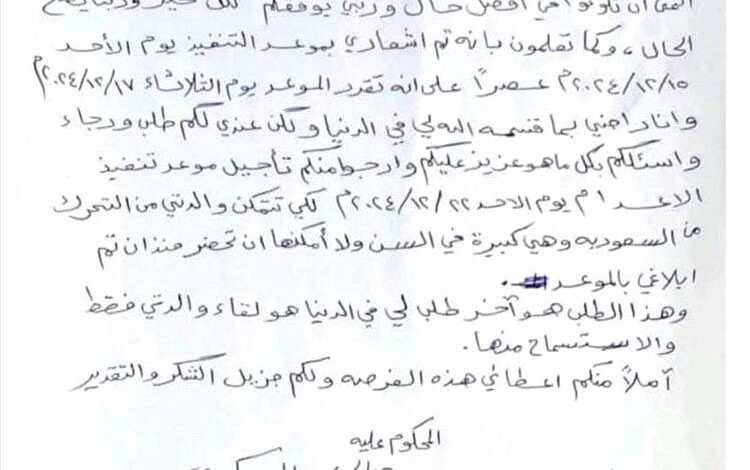 أتمنى ان تكونوا في أفضل حال وربي يوفقكم لكل خير
الحال ، وكما تعلمون بانه تم اشعاري بموعد التنفيذ يوم الأحد
٢٠٢٤/١٢/١٥م عصراً على انه تقرر الموعد يوم الثلاثاء ٢٠٢٤/١٢/١٧م
وانا راضي بما قسمه الله لي في الدنيا ولكن عندي لكم طلب ورجاء
واسئلكم بكل ما هو عزيز عليكم وارجوا منكم تأجيل موعد تنفيذ
الاعدام يوم الاحد ٢٠٢٤/١٢/٢٢م لكي تتمكن والدتي من التحرك
من السعوديه وهي كبيرة في السن ولا أمكنها ان تحضر منذ ان تم
ابلاغي بالموعد .
وهذا الطلب هو آخر طلب لي في الدنيا هو لقاء والدتي فقط
والاستسماح منها .
آملاً منكم اعطائي هذه الفرصه ولكم جزيل الشكر والتقدير
المحكوم عليه